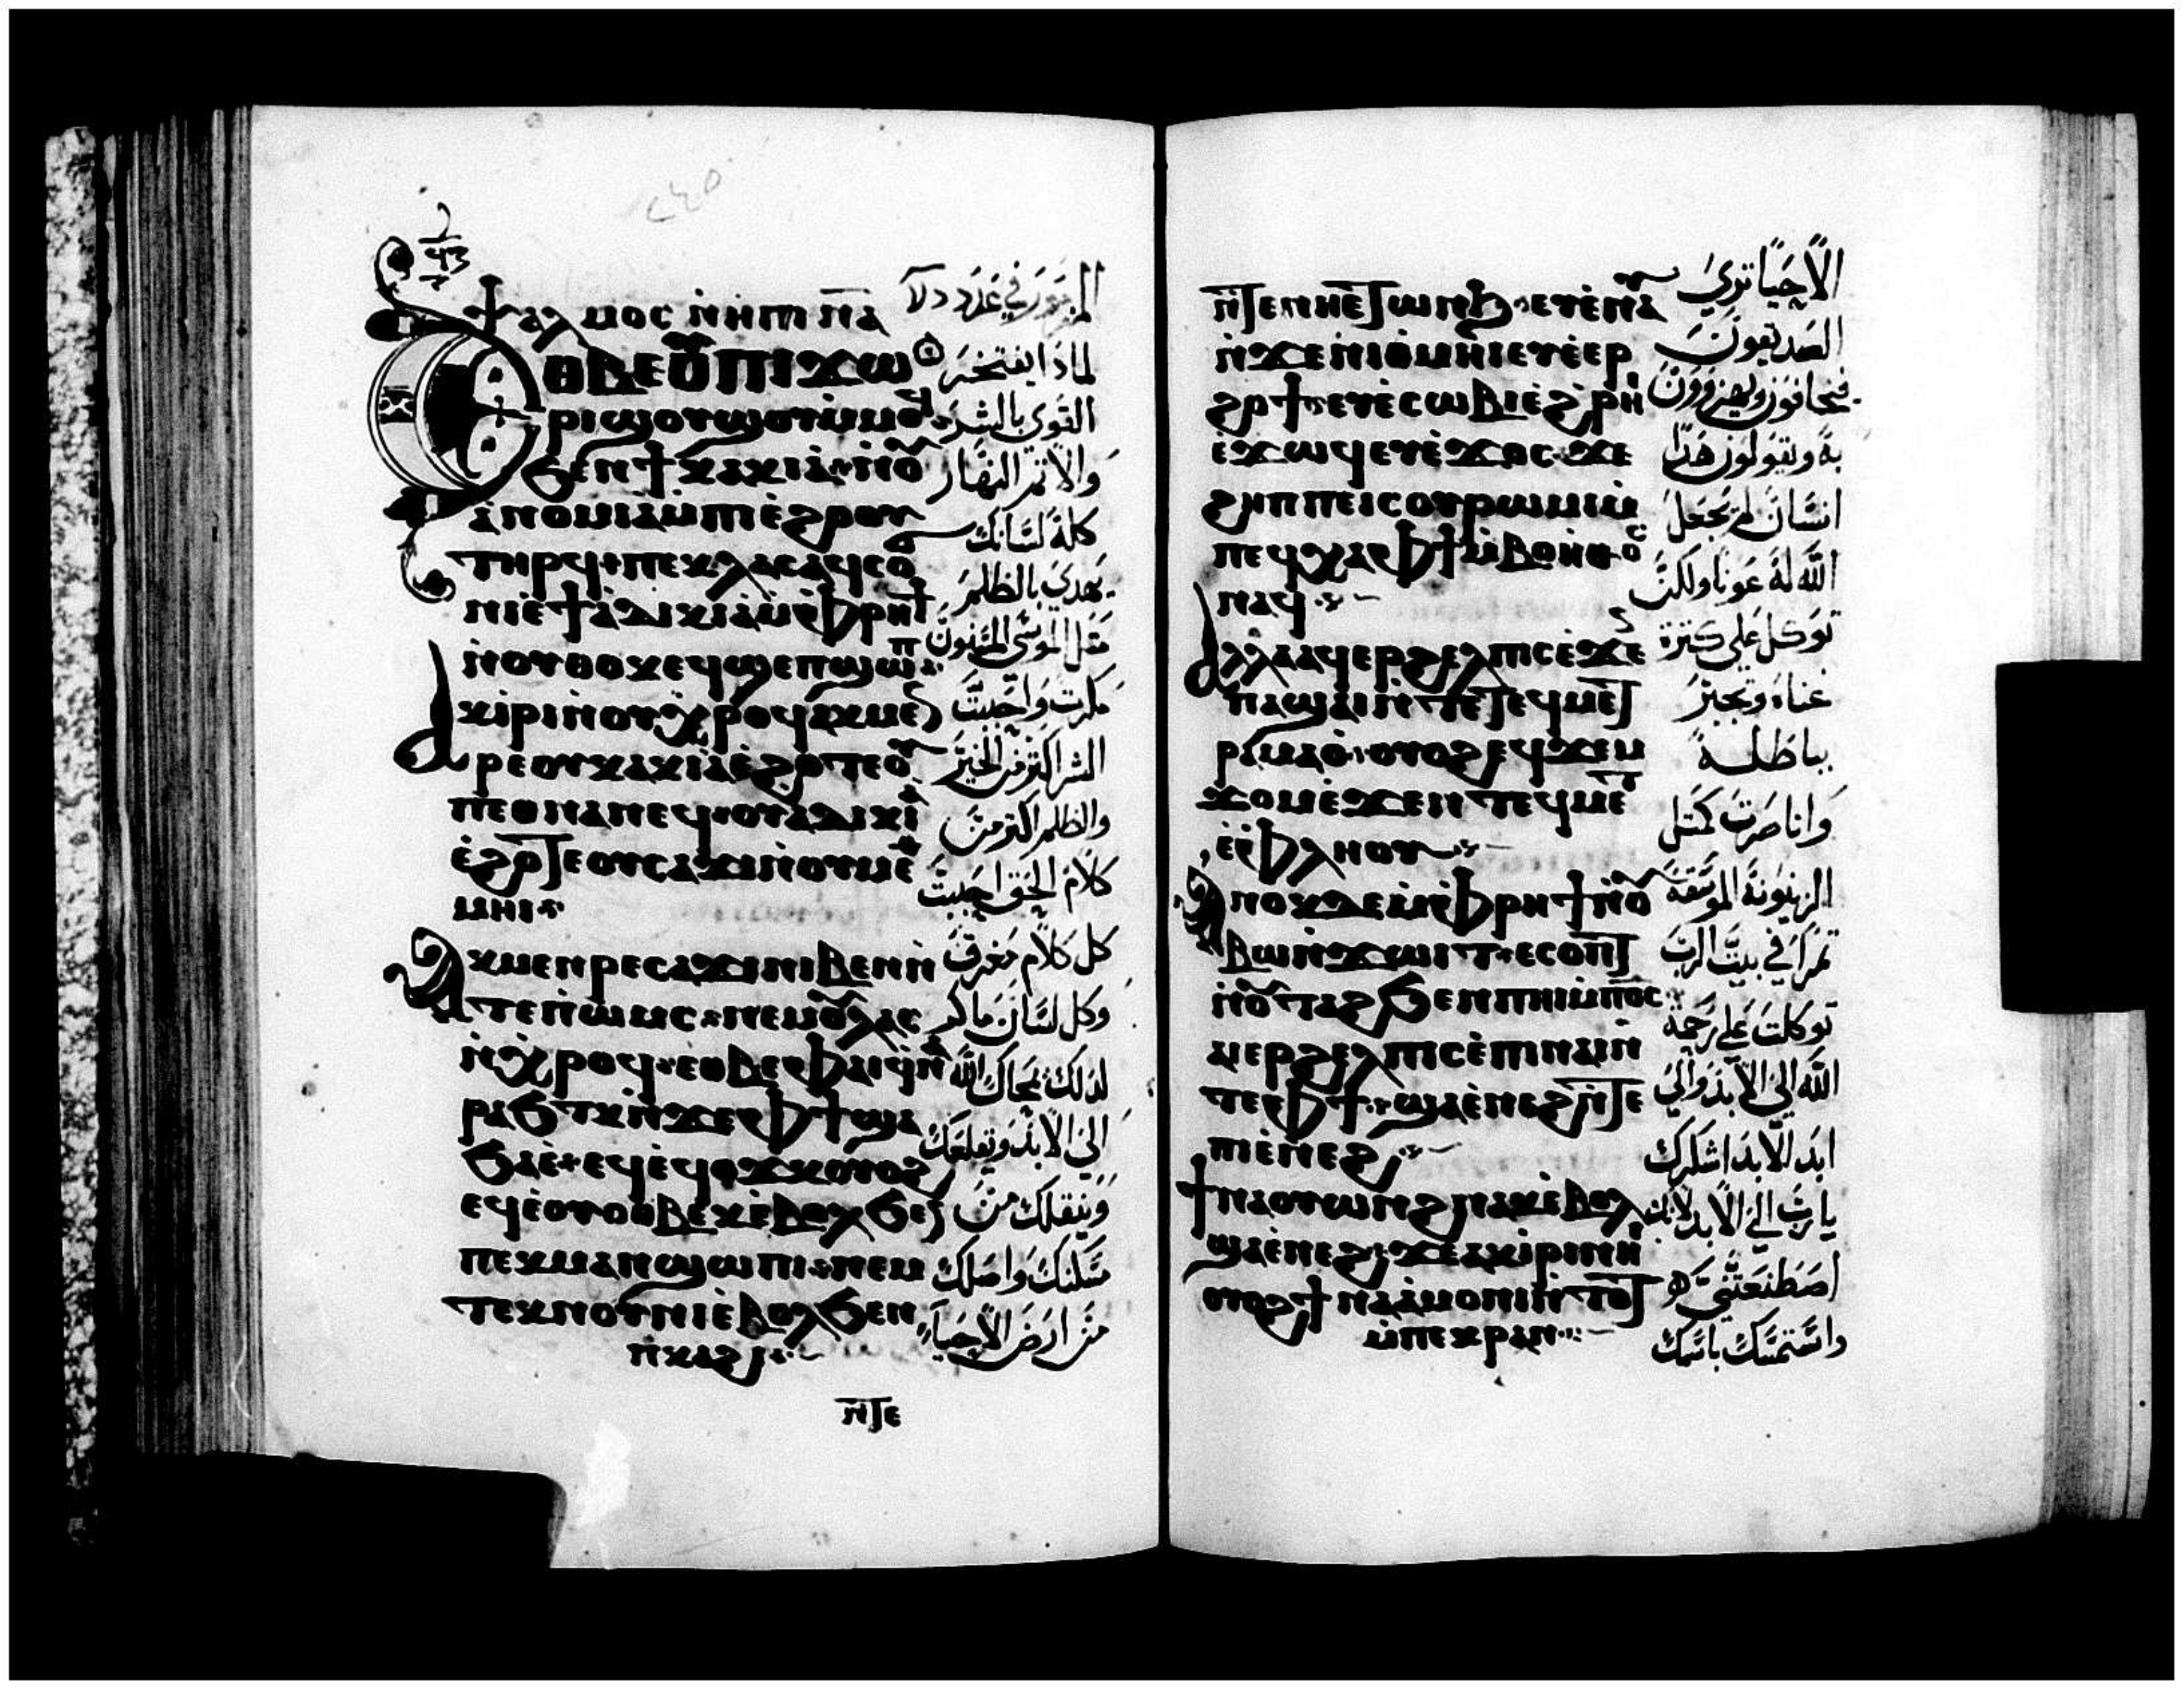 ⲯⲁⲗⲙⲟⲥ ⲛ̇ⲏⲓⲡ ⲛ̅ⲁ̅
ⲉⲑⲃⲉⲟⲩⲡⲓϫⲱ
ⲣⲓϣⲟⲩϣⲟⲩⲙ̇ⲙⲟϥ
ϧⲉⲛϯⲕⲁⲕⲓⲁ ⲛⲟⲩ
ⲁⲛⲟⲙⲓⲁⲙ̇ⲡⲓⲉ̇ϩⲟⲟⲩ
ⲧⲏⲣϥ ⲡⲉⲕⲗⲁⲥⲁϥⲥⲟ
ⲛⲓⲉ̇ϯⲁ̇ⲇⲓⲕⲓⲁⲙ̇ⲫⲣⲏϯ
ⲛ̇ⲟⲩⲑⲟⲕⲉϥϣⲉⲡϣⲱⲡ
ⲁⲕⲓ̇ⲣⲓⲛ̇ⲟⲩⲭⲣⲟϥⲁⲕⲙⲉⲛ
ⲣⲉⲟⲩⲕⲁⲕⲓⲁⲉ̇ϩⲟⲧⲉⲟⲩ
ⲡⲉⲑⲛⲁⲛⲉϥ ⲟⲩⲁⲇⲓⲕⲓⲁ
ⲉ̇ϩⲟⲧⲉⲟⲩⲥⲁϫⲓⲛ̇ⲟⲩⲙⲉⲑ
ⲙⲏⲓ
ⲁⲕⲙⲉⲛⲣⲉⲥⲁϫⲓⲛⲓⲃⲉⲛⲛ̇
ⲧⲉⲡ̇ⲱⲙⲥ ⲛⲉⲙⲟⲩⲗⲁⲥ
ⲛ̇ⲭⲣⲟϥ ⲉⲑⲃⲉⲫⲁⲓϥⲛⲁ
ⲣⲁϧⲧⲕⲛ̇ϫⲉⲫϯϣⲁ
ϧⲁⲉ̇ ⲉϥⲉ̇ϥⲟϫⲕⲟⲩⲟϩ
ⲉϥⲉ̇ⲟⲩⲟⲑⲃⲉⲕⲉ̇ⲃⲟⲗϧⲉⲛ
ⲡⲉⲕⲙⲁⲛϣⲱⲡⲓ ⲛⲉⲙ
ⲧⲉⲕⲛⲟⲩⲛⲓⲉ̇ⲃⲟⲗϧⲉⲛ
ⲡⲕⲁϩⲓ
ⲛ̅ⲧⲉ
لماذا يفتخر
القوى بالشر
والاثم النهار
كلة لسانك
يهذي بالظلم
مثل الموسى المسنون
مكرت واحببت
الشر اكثر من الخير
والظلم اكثر من
كلام الحق احببت
كل كلام مغرق
وكل لسان ماكر
لذلك يمحاك الله
الى الابد ويقلعك
وينقلك من
مسكنك واصلك
من ارض الاحياء
ⲛ̅ⲧⲉⲛⲏⲉⲧⲱⲛϧ ⲉⲩⲉ̇ⲛⲁⲩ
ⲛ̇ϫⲉⲛⲓⲑⲙⲏⲓⲉⲩⲉ̇ⲉⲣ
ϩⲟϯ ⲉⲩⲉ̇ⲥⲱⲃⲓⲉ̇ϩⲣⲏⲓ
ⲉ̇ϫⲱϥⲉⲩⲉ̇ϫⲟⲥ ϫⲉ
ϩⲏⲡⲡⲉⲓⲥⲟⲩⲣⲱⲙⲓⲙ̇
ⲡⲉϥⲭⲁⲫϯⲙ̇ⲃⲟⲏⲑⲟⲥ
ⲛⲁϥ
ⲁⲗⲗⲁⲁϥⲉⲣϩⲉⲗⲡⲓⲥⲉ̇ϫⲉ
ⲡⲁϣⲁⲓⲛ̇ⲧⲉⲧⲉϥⲙⲉⲧ
ⲣⲁⲙⲁⲟ ⲟⲩⲟϩⲉϥϫⲉⲙ
ϫⲟⲙⲉ̇ϫⲉⲛⲧⲉϥⲙⲉⲧ
ⲉ̇ⲫⲗⲏⲟⲩ
ⲁⲛⲟⲕⲇⲉⲙ̇ⲫⲣⲏϯⲛ̇ⲟⲩ
ⲃⲱⲛ̇ϫⲱⲓⲧ ⲉⲥⲟⲓⲛ̇ϯ
ⲛ̇ⲟⲩⲧⲁϩϧⲉⲛⲡⲏⲓⲙ̇ⲡⲟ̅ⲥ̅
ⲁⲓⲉⲣϩⲉⲗⲡⲓⲥⲉ̇ⲡⲓⲛⲁⲓⲛ̇
ⲧⲉⲫϯ ϣⲁⲉ̇ⲛⲉϩⲛ̇ⲧⲉ
ⲡⲓⲉ̇ⲛⲉϩ
ϯⲛⲁⲟⲩⲱⲛϩⲛⲁⲕⲉ̇ⲃⲟⲗ
ϣⲁⲉ̇ⲛⲉϩ ϫⲉⲁⲕⲓ̇ⲣⲓⲛⲏⲓ
ⲟⲩⲟϩϯⲛⲁⲁⲙⲟⲛⲓⲛ̇ⲧⲟⲧ
ⲙ̇ⲡⲉⲕⲣⲁⲛ
الاحيا ترى
الصديقون
فيخافون ويهزؤون
به ويقولون هذا
انسان لم يجعل
الله له عونا ولكن
توكل على كثرة
غناه وتجبر
بباطله
وانا صرت كمثل
الزيتونة الموسقة
ثمرا في بيت الرب
توكلت على رحمة
الله الى الابد والى
ابد الابد اشكرك
يا رب الى الابد لانك
اصطنعتني
واستمسك باسمك